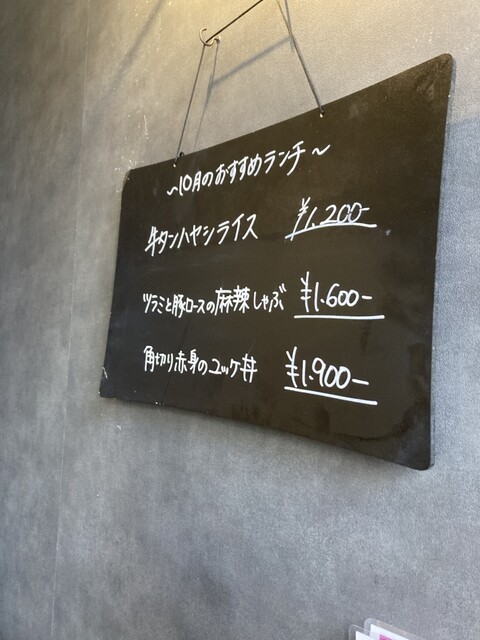 ～10月のおすすめランチ～
牛タンハヤシライス ¥1.200-
ツラミと豚ロースの麻辣しゃぶ ¥1.600-
角切り赤身のユッケ丼 ¥1.900-